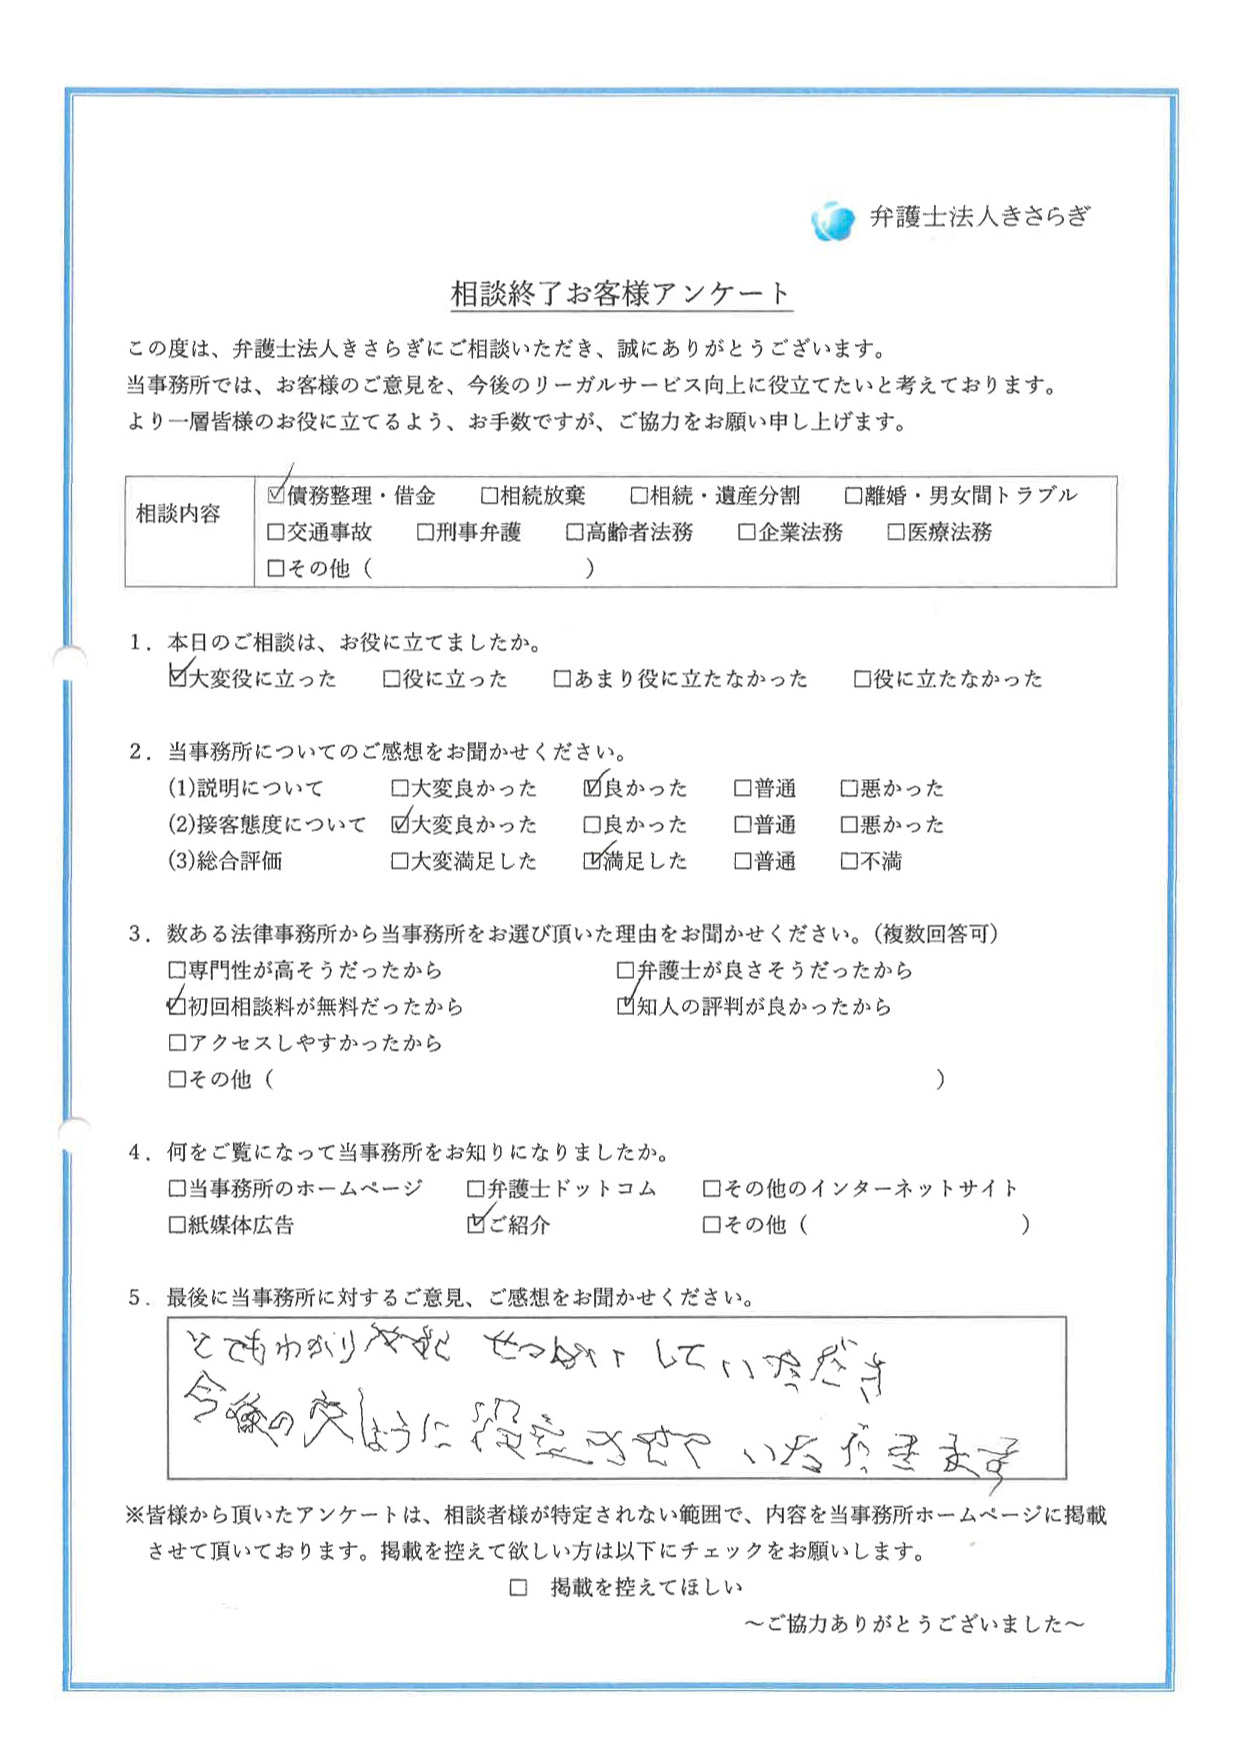 弁護士法人きさらぎ
相談終了お客様アンケート
この度は、弁護士法人きさらぎにご相談いただき、誠にありがとうございます。
当事務所では、お客様のご意見を、今後のリーガルサービス向上に役立てたいと考えております。
より一層皆様のお役に立てるよう、お手数ですが、ご協力をお願い申し上げます。
相談内容
☑債務整理・借金 □相続放棄 □相続・遺産分割 □離婚・男女間トラブル
□交通事故 □刑事弁護 □高齢者法務 □企業法務 □医療法務
□その他（ ）
1．本日のご相談は、お役に立てましたか。
☑大変役に立った □役に立った □あまり役に立たなかった □役に立たなかった
2．当事務所についてのご感想をお聞かせください。
(1)説明について □大変良かった ☑良かった □普通 □悪かった
(2)接客態度について ☑大変良かった □良かった □普通 □悪かった
(3)総合評価 □大変満足した ☑満足した □普通 □不満
3．数ある法律事務所から当事務所をお選び頂いた理由をお聞かせください。（複数回答可）
□専門性が高そうだったから □弁護士が良さそうだったから
☑初回相談料が無料だったから ☑知人の評判が良かったから
□アクセスしやすかったから
□その他（ ）
4．何をご覧になって当事務所をお知りになりましたか。
□当事務所のホームページ □弁護士ドットコム □その他のインターネットサイト
□紙媒体広告 ☑ご紹介 □その他（ ）
5．最後に当事務所に対するご意見、ご感想をお聞かせください。
とてもわかり していただき
今後の させて いただきます
※皆様から頂いたアンケートは、相談者様が特定されない範囲で、内容を当事務所ホームページに掲載
させて頂いております。掲載を控えて欲しい方は以下にチェックをお願いします。
□ 掲載を控えてほしい
～ご協力ありがとうございました～